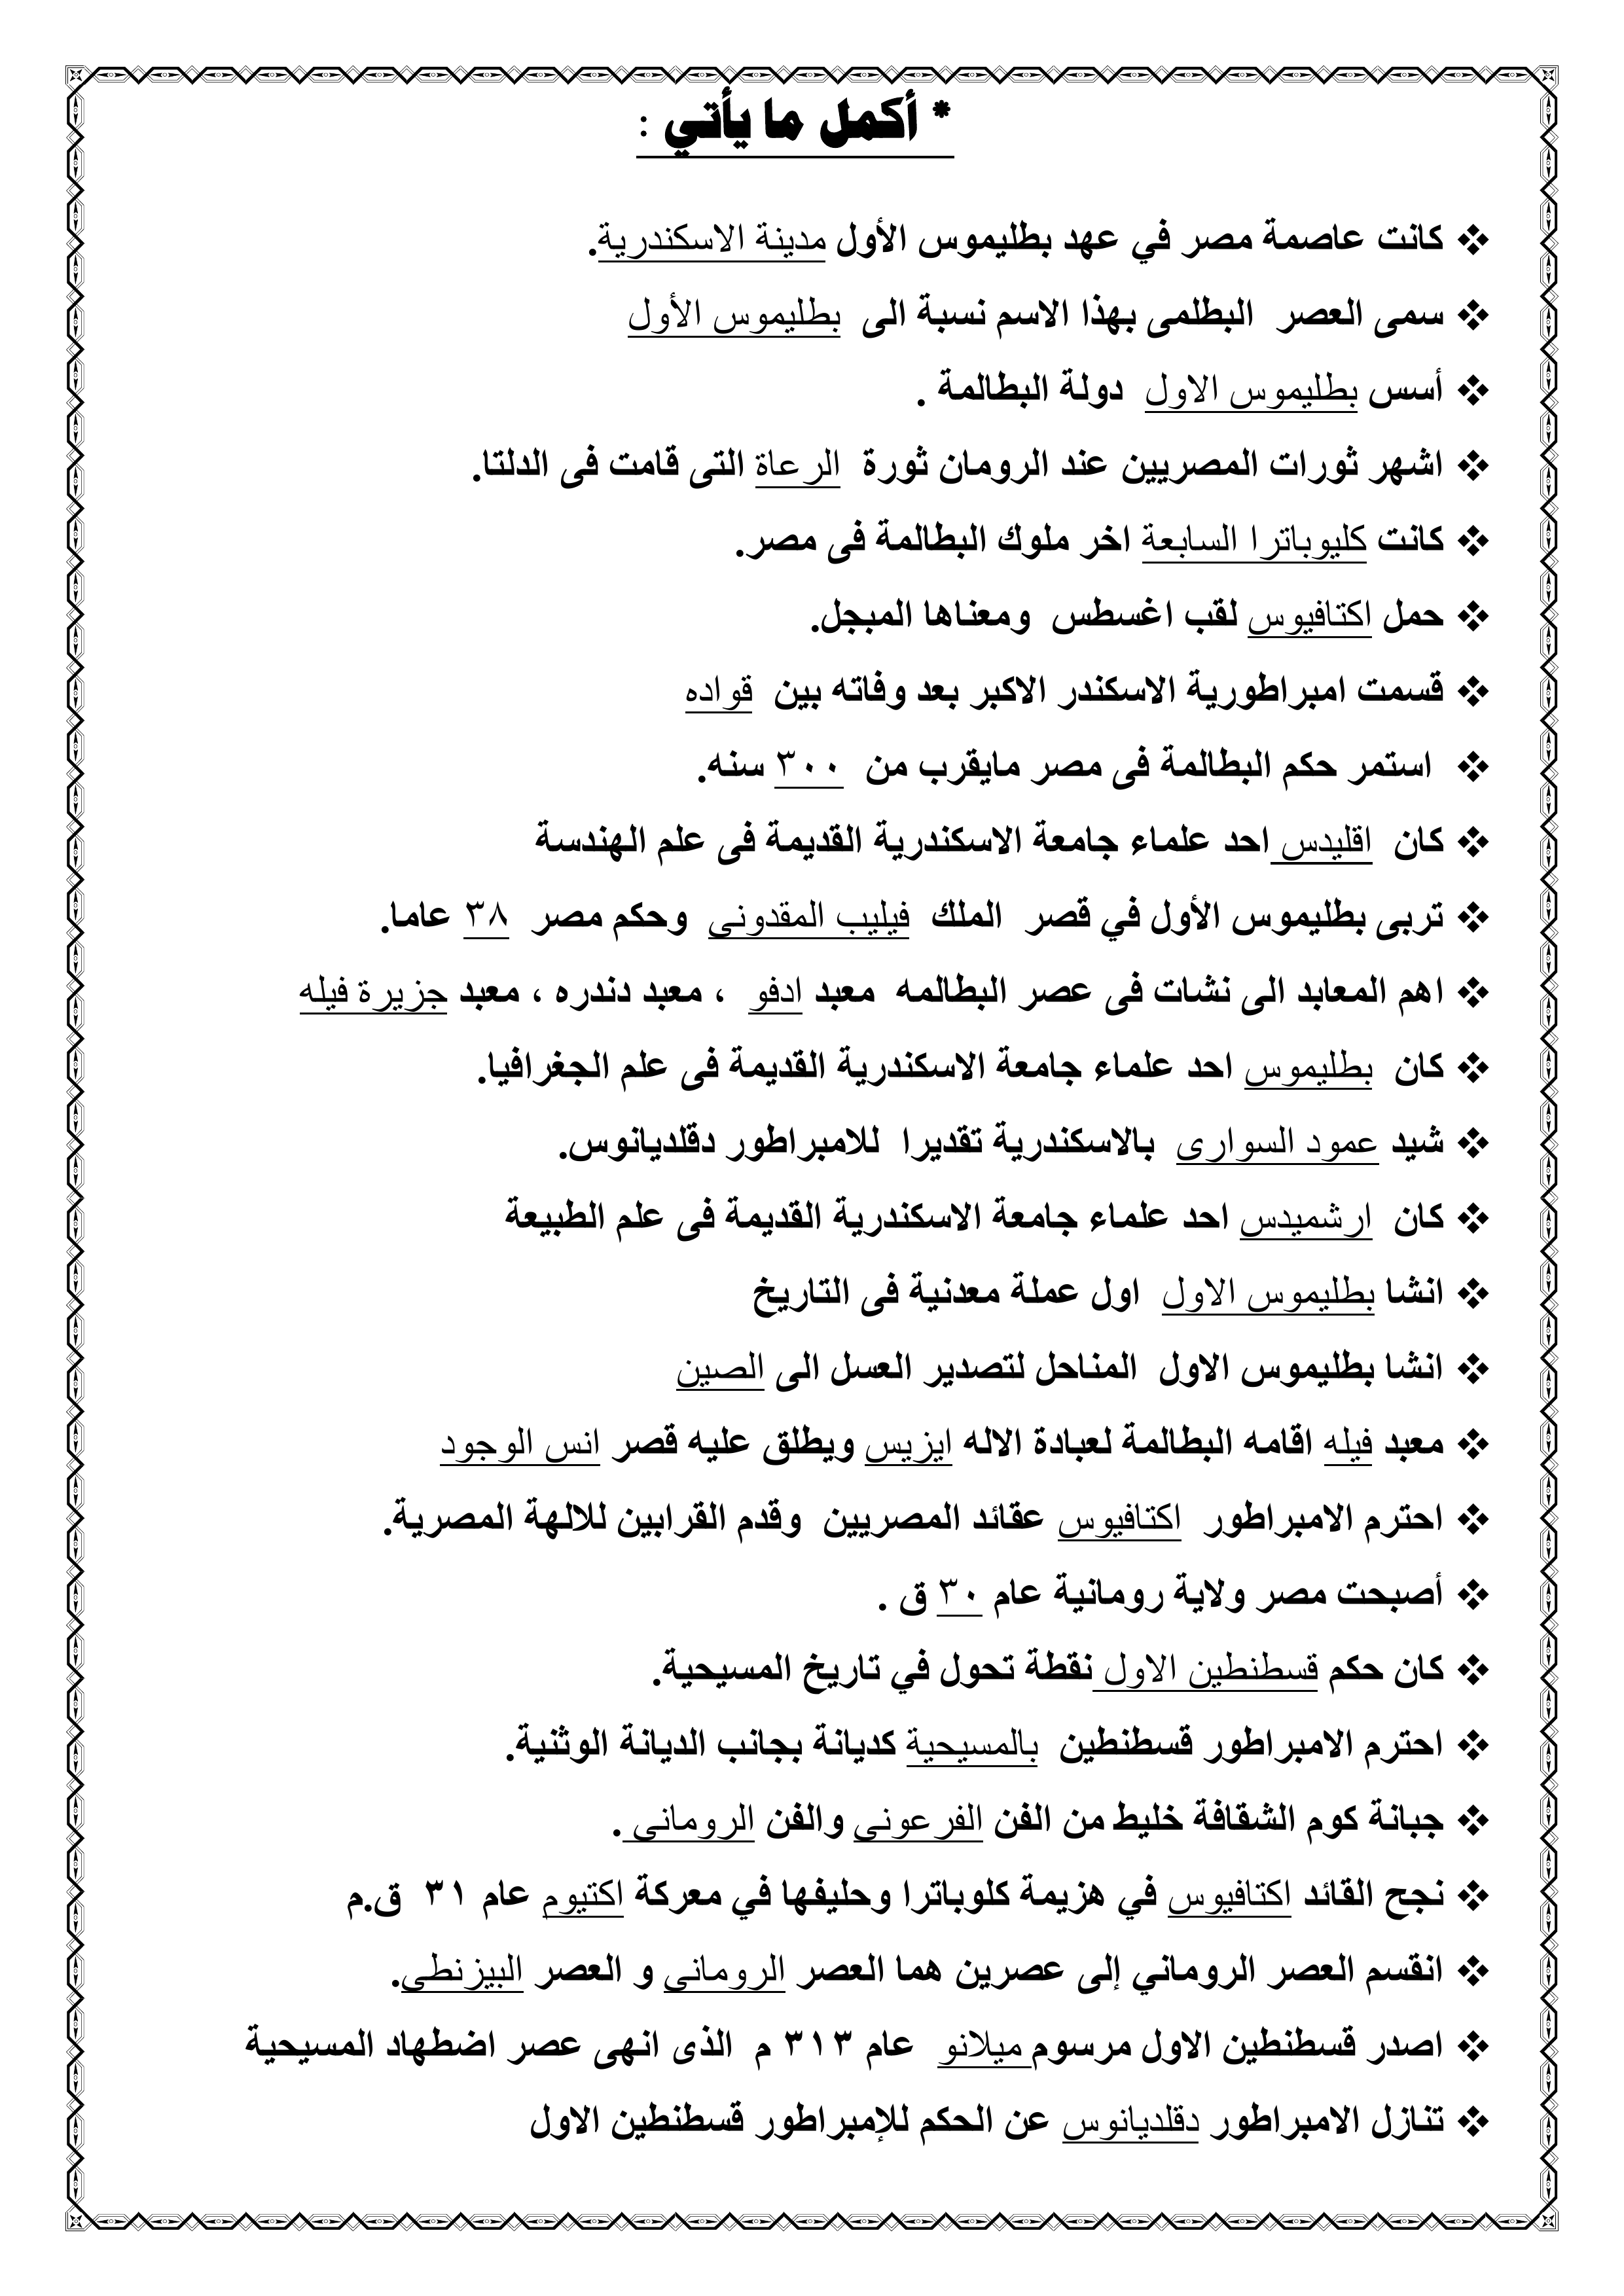 * أكمل ما يأتي :
❖ كانت عاصمة مصر في عهد بطليموس الأول مدينة الاسكندرية.
❖ سمى العصر البطلمى بهذا الاسم نسبة الى بطليموس الأول
❖ أسس بطليموس الاول دولة البطالمة .
❖ اشهر ثورات المصريين عند الرومان ثورة الرعاة التى قامت فى الدلتا.
❖ كانت كليوباترا السابعة اخر ملوك البطالمة فى مصر.
❖ حمل اكتافيوس لقب اغسطس ومعناها المبجل.
❖ قسمت امبراطورية الاسكندر الاكبر بعد وفاته بين قواده
❖ استمر حكم البطالمة فى مصر مايقرب من ٣٠٠ سنه.
❖ كان اقليدس احد علماء جامعة الاسكندرية القديمة فى علم الهندسة
❖ تربى بطليموس الأول في قصر الملك فيليب المقدونى وحكم مصر ٣٨ عاما.
❖ اهم المعابد الى نشات فى عصر البطالمه معبد ادفو ، معبد دندره ، معبد جزيرة فيله
❖ كان بطليموس احد علماء جامعة الاسكندرية القديمة فى علم الجغرافيا.
❖ شيد عمود السوارى بالاسكندرية تقديرا للامبراطور دقلديانوس.
❖ كان ارشميدس احد علماء جامعة الاسكندرية القديمة فى علم الطبيعة
❖ انشا بطليموس الاول اول عملة معدنية فى التاريخ
❖ انشا بطليموس الاول المناحل لتصدير العسل الى الصين
❖ معبد فيله اقامه البطالمة لعبادة الاله ايزيس ويطلق عليه قصر انس الوجود
❖ احترم الامبراطور اكتافيوس عقائد المصريين وقدم القرابين للالهة المصرية.
❖ أصبحت مصر ولاية رومانية عام ٣٠ ق .
❖ كان حكم قسطنطين الاول نقطة تحول في تاريخ المسيحية.
❖ احترم الامبراطور قسطنطين بالمسيحية كديانة بجانب الديانة الوثنية.
❖ جبانة كوم الشقافة خليط من الفن الفرعونى والفن الرومانى .
❖ نجح القائد اكتافيوس في هزيمة كلوباترا وحليفها في معركة اكتيوم عام ٣١ ق.م
❖ انقسم العصر الروماني إلى عصرين هما العصر الرومانى و العصر البيزنطى.
❖ اصدر قسطنطين الاول مرسوم ميلانو عام ٣١٣ م الذى انهى عصر اضطهاد المسيحية
❖ تنازل الامبراطور دقلديانوس عن الحكم للإمبراطور قسطنطين الاول